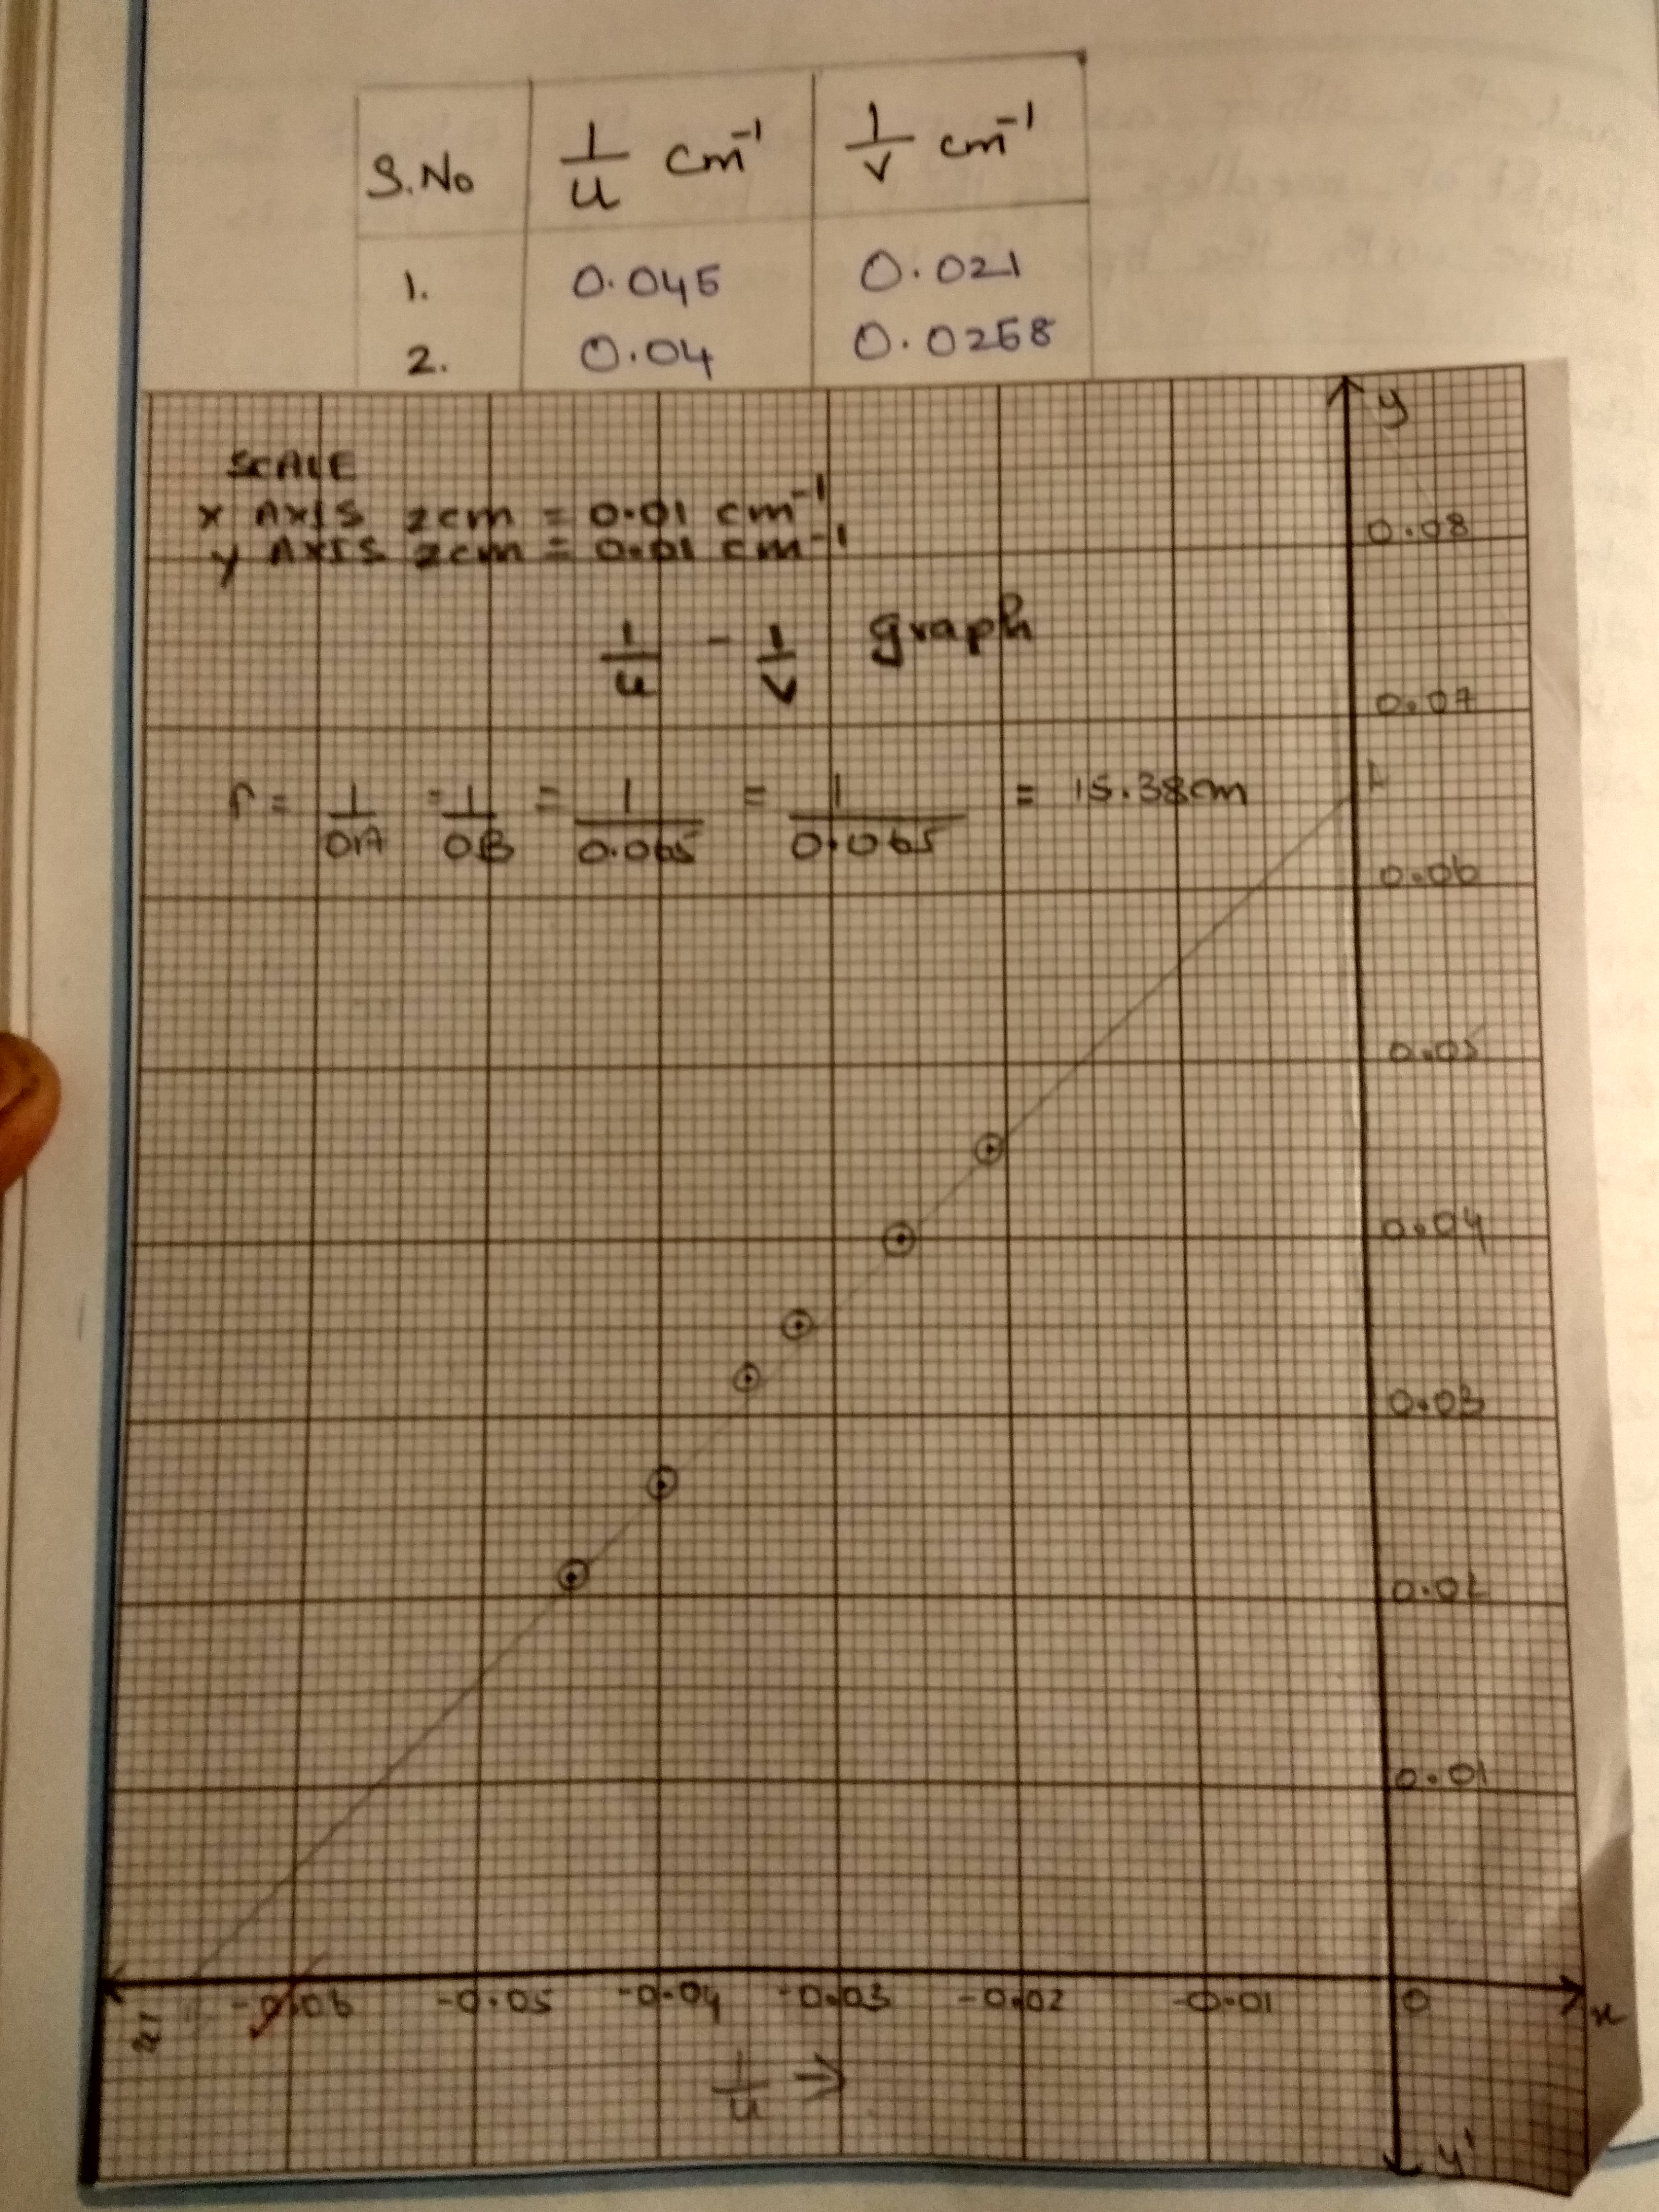 S.No 1/u cm⁻¹ 1/v cm⁻¹
1. 0.045 0.021
2. 0.04 0.0258
y
SCALE
X AXIS 2cm = 0.01 cm⁻¹
y AXIS 2cm = 0.01 cm⁻¹
0.08
1/u - 1/v graph
0.07
f = 1/OA = 1/OB = 1/0.065 = 1/0.065 = 15.38cm
0.06
0.05
0.04
0.03
0.02
0.01
-0.06 -0.05 -0.04 -0.03 -0.02 -0.01 0
x' x
1/u →
y'